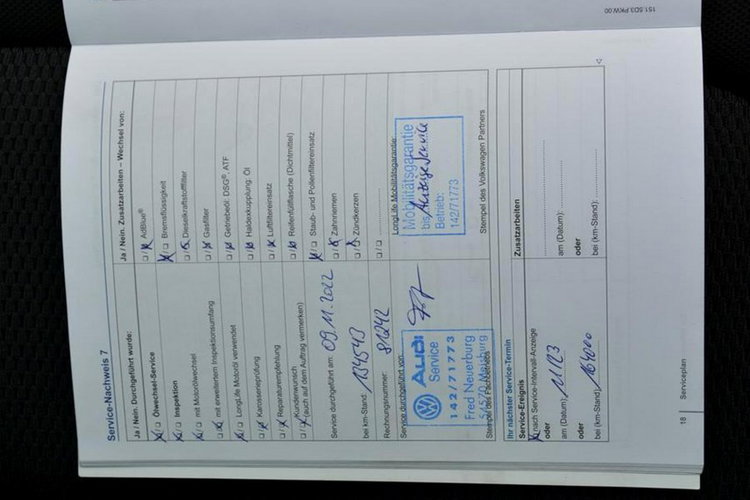 151.5D3.PKW.00
Service-Nachweis 7
Ja / Nein. Durchgeführt wurde:
Ölwechsel-Service
Inspektion
mit Motorölwechsel
mit erweitertem Inspektionsumfang
LongLife Motoröl verwendet
Karosserieprüfung
Reparaturempfehlung
Kundenwunsch
(auch auf dem Auftrag vermerken)
Service durchgeführt am: 09.11.2022
bei km-Stand: 134543
Rechnungsnummer: 81242
Service durchgeführt von:
AUDI
Service
142/71773
Fred Neuerburg
Stempel des Fachbetriebs
Ja / Nein. Zusatzarbeiten – Wechsel von:
AdBlue®
Bremsflüssigkeit
Dieselkraftstofffilter
Gasfilter
Getriebeöl: DSG®, ATF
Haldexkupplung: Öl
Luftfiltereinsatz
Reifenfüllflasche (Dichtmittel)
Staub- und Pollenfiltereinsatz
Zahnriemen
Zündkerzen
LongLife Mobilitätsgarantie:
Mobilitätsgarantie
bis Anzeige Service
Betrieb:
142/71773
Stempel des Volkswagen Partners
Ihr nächster Service-Termin
Service-Ereignis
nach Service-Intervall-Anzeige
oder
am (Datum): 11/23
oder
bei (km-Stand): 164000
Zusatzarbeiten
am (Datum):
oder
bei (km-Stand):
18 Serviceplan